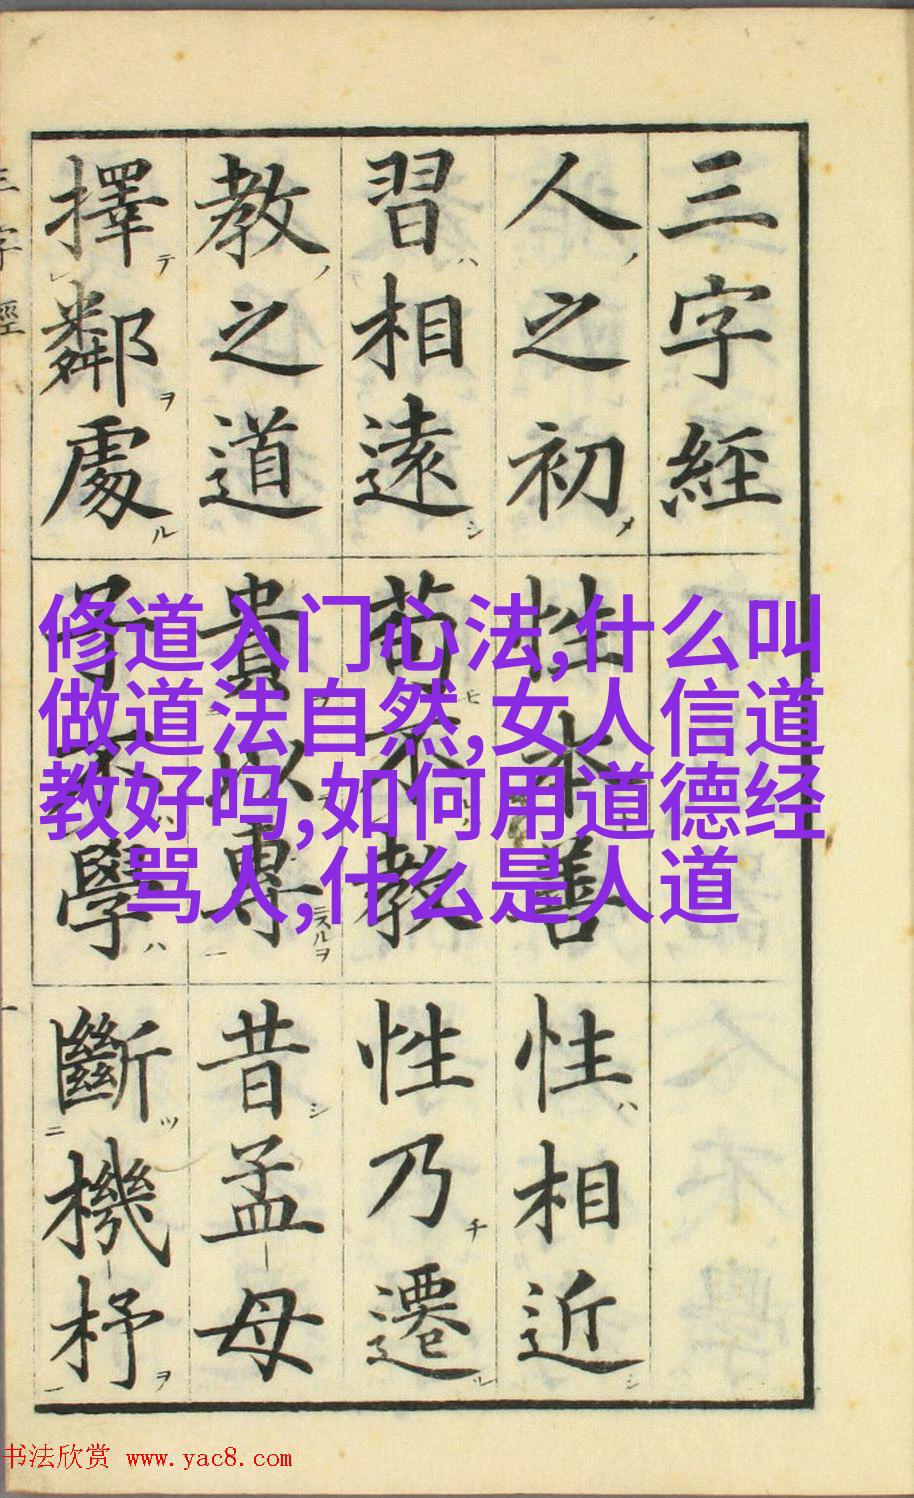 三字経
人之初 性本善 性相近
習相遠 苟不教 性乃遷
教之道 貴以専 昔孟母
擇鄰處 子不學 斷機杼
三字經
一
修道入门心法,什么叫
做道法自然,女人信道
教好吗,如何用道德经
骂人,什么是人道
书法欣赏 www.yac8.com